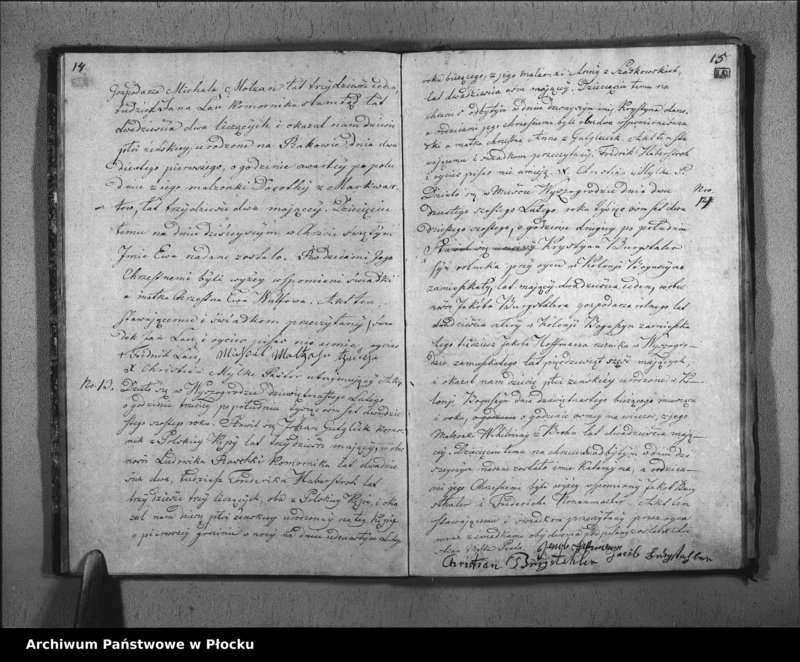 14
Gospodarza Michała Molzan lat trzydzieści
tudzież Jana Lau komornika stamtąd lat
dwadzieścia dwa liczących i okazał nam dziecię
płci żeńskiej, urodzone na Rakowie dnia dwu
dziestego pierwszego, o godzinie czwartej po połu
dniu z jego małżonki Dorothy z Markwar
tow, lat trzydzieści dwa mającej. Dziecięciu
temu na dniu dzisiejszym w Chrzcie świętym
Imie Ewa nadane zostało. Rodzicami Jego
Chrzestnemi byli wyżej wspomnieni świadki
a matka Chrzestna Ewa Wulfowa. Akt ten
stawającemu i świadkom przeczytany, świa
dek Jan Lau, i ojciec pisać nie umie,
Michał Molzahn
Christian Mylke Pastor utrzymujący Akta
No. 13. Działo się w Wyszogrodzie dwudziestego Lutego
o godzinie trzeciej po południu tysiąc ośm set dwudzie
stego szostego roku. Stawił się Johan Gutglick komor
nik z Polskiej Kępy lat trzydzieści mający, w obe
ności Ludowika Rawski komornika lat dwadzie
ścia dwa, tudzież Friderika Haberstroh lat
trzydzieście trzy liczących, oba z Polskiej Kępie, i oka
zał nam dziecię płci żeńskiej urodzone na tej Kępie
o pierwszej godzinie w nocy na dniu Lutego
15
roku bieżącego, z jego małżonki Anny z Szadkowskich,
lat dwadzieścia ośm mającej. Dziecięciu temu na
Chrzcie S. odbytym w dniu dzisiejszym imie Krystyna dano,
a rodzicami jego Chrzestnemi byli obadwa wspomnieni świa
dki a matka chrzestna Anna z Gutglick. Akt ten sta
wającemu i świadkom przeczytany. Fridrik Haberstroh
i ojciec pisać nie umieją. Christian Mylke P.
No. 14
Działo się w Mieście Wyszogrodzie dnia dwu
dziestego szostego Lutego, roku tysiąc ośm set dwu
dziestego szostego, o godzinie drugiej po południu
Stawił się Krystyan Burgstaler
syn rolnika przy ojcu w Kolonji Boguszyn
zamieszkały, lat mający dwadzieścia jeden, w obec
ności Jakóba Burgstalera gospodarza rolnego lat
dwadzieścia cztery w Kolonji Boguszyn zamieszka
łego tudzież Jakób Hoffmana rzeźnika w Wyszogro
dzie zamieszkałego lat pięćdziesiąt sześć mających
i okazał nam dziecię płci żeńskiej urodzone w Ko
lonji Boguszyn dnia dziewiętnastego bieżącego miesiąca
i roku, o godzinie osmej na wieczor, z jego
Małżonki Wilhelminy z Kroln lat dwadzieścia mają
cej. Dziecięciu temu na chrzcie odbytym w dniu dzi
siejszym nadane zostało imie Katarzyna, a rodzica
mi jego Chrzestnemi byli wyżej wspomniony Jakób Burg
staler i Fridericka Akt ten
stawającemu i świadkom przeczytany przez ojca
wraz z świadkami obydwoma podpisany został
Mylke Pastor
Jacob Burgstahler
Christian Burgstahler
Archiwum Państwowe w Płocku